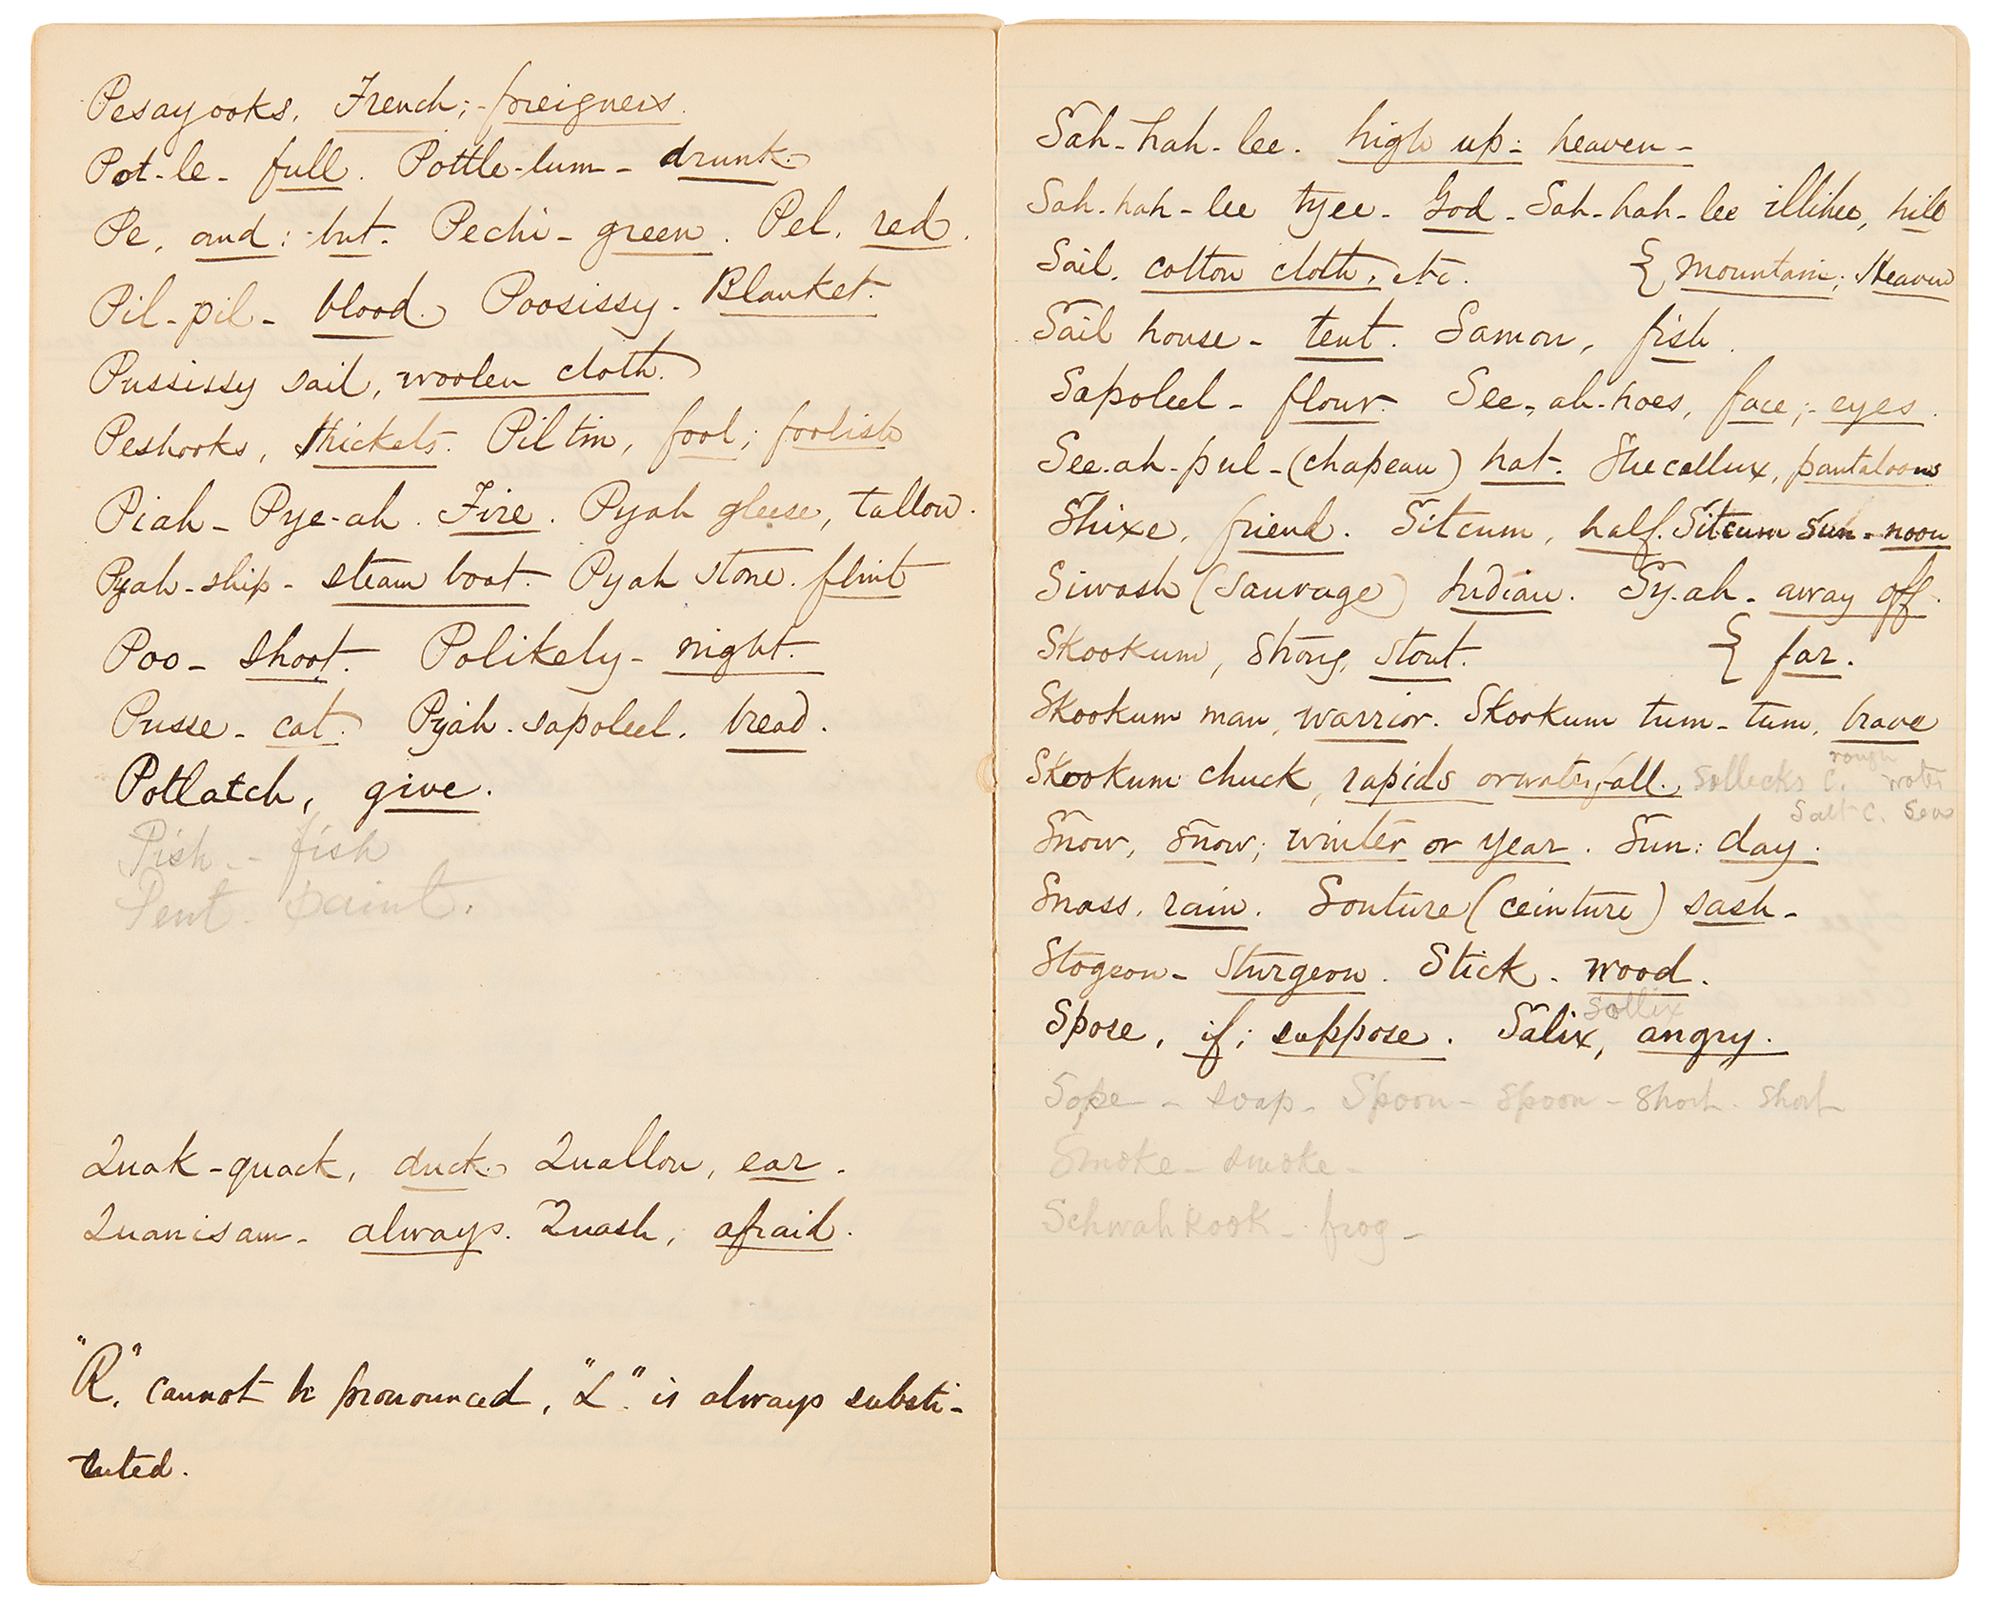 Pesayooks, French; foreigners.
Pot-le- full. Pottle-lum- drunk.
Pe, and; but. Pechi- green. Pel, red.
Pil-pil- blood. Poosissy- Blanket.
Pussissy sail, woolen cloth.
Peshooks, thickets. Pilton, fool; foolish
Piah- Pye-ah. Fire. Pyah gleese, tallow.
Pyah-ship- steam boat. Pyah stone. flint
Poo- shoot. Polikely- night.
Pusse- cat. Pyah-sapoleel. bread.
Potlatch, give.
Pish - fish
Pent - paint.
Quak-quack, duck. Quallon, ear.
Quanisam- always. Quash, afraid.
"R." cannot be pronounced, "L". is always substi-
tuted.
Sah-hah-lee. high up: heaven-
Sah-hah-lee tyee- God- Sah-hah-lee illihee, hill
Sail. cotton cloth, etc. { mountain; Heaven
Sail house- tent. Samon, fish.
Sapoleel- flour. See-ah-hoes, face; eyes.
See-ah-pul-(chapeau) hat. Shecollux, pantaloons
Shixe, friend. Sitcum, half. Sitcum Sun- noon
Siwash (Sauvage) Indian. Sy-ah- away off.
Skookum, strong, stout. { far.
Skookum man, warrior. Skookum tum-tum, brave
Skookum chuck, rapids or waterfall. Sollecks C. rough water
Salt C. Sea
Snow, snow; winter or year. Sun: day.
Snass, rain. Souture (ceinture) sash-
Stogeon- sturgeon. Stick- wood.
Spose, if; suppose. Salix, sollix angry.
Sope - soap- Spoon- spoon- short- short
Smoke- smoke-
Schwahkook- frog-